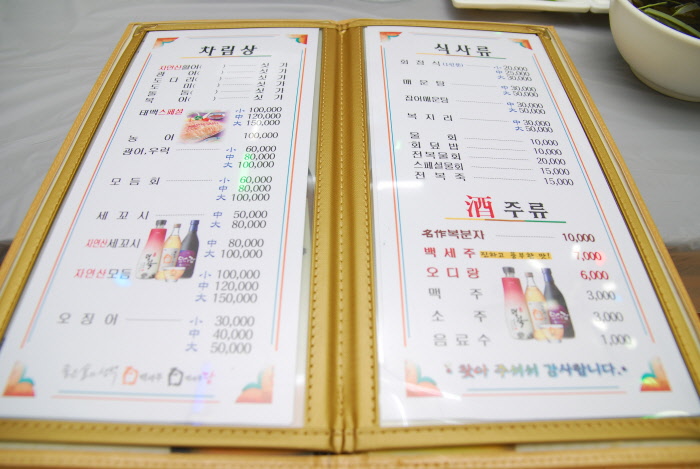 차림상
자연산광어( ) 싯 가
광 어( ) 싯 가
도 다 리( ) 싯 가
도 미( ) 싯 가
돌 돔( ) 싯 가
복 어( ) 싯 가
태백스페셜 小 100,000
中 120,000
大 150,000
농 어 100,000
광어,우럭 小 60,000
中 80,000
大 100,000
모 듬 회 小 60,000
中 80,000
大 100,000
세 꼬 시 中 50,000
大 80,000
자연산세꼬시 中 80,000
大 100,000
자연산모듬 小 100,000
中 120,000
大 150,000
오 징 어 小 30,000
中 40,000
大 50,000
식사류
회 정 식(1인분) 小 20,000
中 25,000
大 30,000
매 운 탕 中 30,000
大 50,000
잡어매운탕 中 30,000
大 50,000
복 지 리 中 30,000
大 50,000
물 회 10,000
회 덮 밥 10,000
전복물회 20,000
스페셜물회 15,000
전 복 죽 15,000
酒 주류
名作복분자 10,000
백 세 주 진하고 풍부한 맛! 7,000
오 디 랑 6,000
맥 주 3,000
소 주 3,000
음 료 수 1,000
찾아 주셔서 감사합니다.